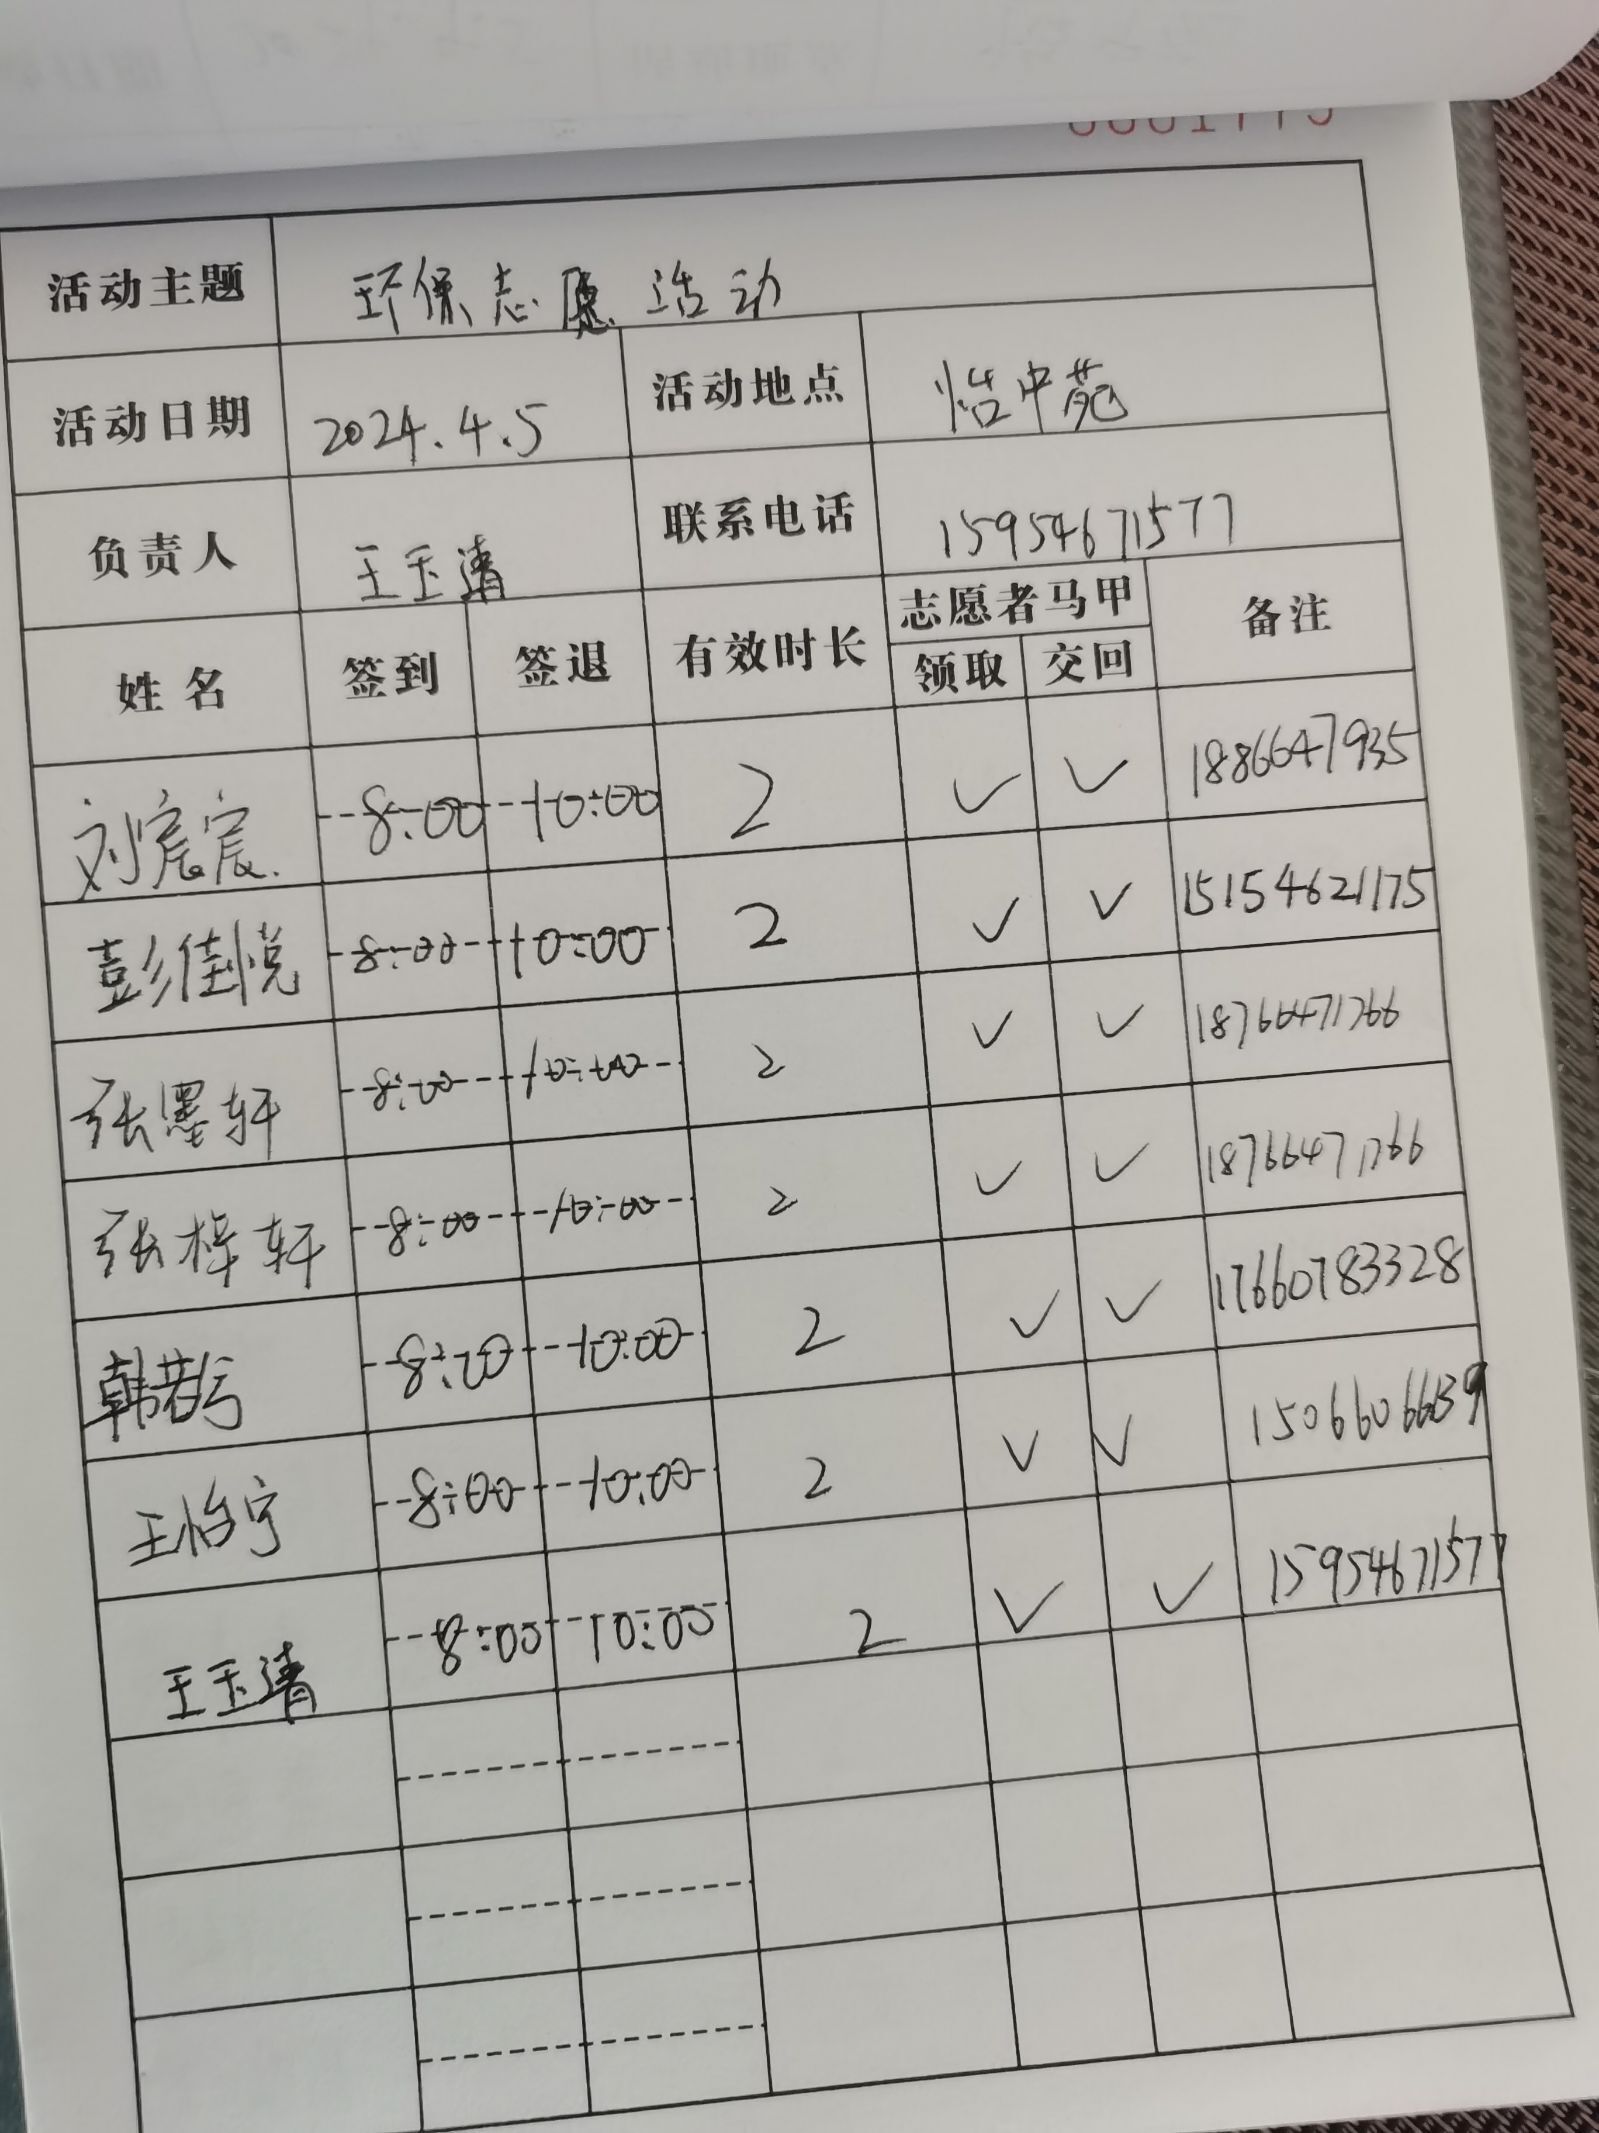 活动主题 环保志愿活动
活动日期 2024.4.5 活动地点 怡中苑
负责人 王玉清 联系电话 15954671577
姓名 签到 签退 有效时长 志愿者马甲 领取 交回 备注
刘宸宸 8:00 10:00 2 ✓ ✓ 1886647935
彭佳悦 8:00 10:00 2 ✓ ✓ 15154621175
张墨轩 8:00 10:00 2 ✓ ✓ 18766471766
张梓轩 8:00 10:00 2 ✓ ✓ 18766471766
韩若兮 8:00 10:00 2 ✓ ✓ 17660783328
王怡宁 8:00 10:00 2 ✓ ✓ 15066066639
王玉清 8:00 10:00 2 ✓ ✓ 15954671577